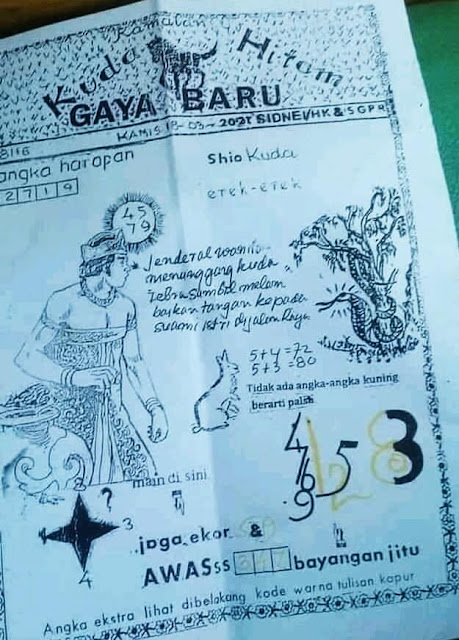 Ramalan
Kuda Hitam
GAYA BARU
KAMIS 18-03-2021 SIDNEI/HK & SGPR
angka harapan
Shio Kuda
2719
erek-erek
45
79
Jenderal wanita
menunggang kuda
zebra simbol melam
baikan tangan kepada
suami istri di jalan Raya
5+4=72
5+3=80
Tidak ada angka-angka kuning
berarti palsu
4
7
6
9
1
2
5
8
3
main di sini
?
3
4
jaga ekor &
AWASss bayangan jitu
Angka ekstra lihat dibelakang kode warna tulisan kapur